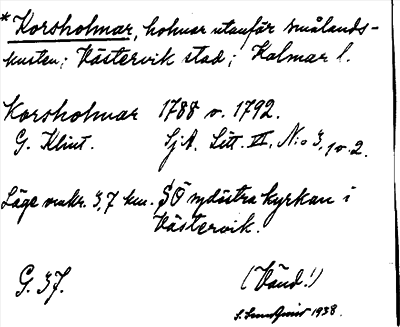 * Korsholmar, holmar utanför smålands-
kusten; Västervik stad; Kalmar l.
Korsholmar 1788 o. 1792.
G. Klint. SjA. Litt. VI, N:o 3, 1 o. 2.
Läge omkr. 3,7 km. SÖ sydöstra kyrkan i
Västervik.
G. 37. (Vänd!)
1938.